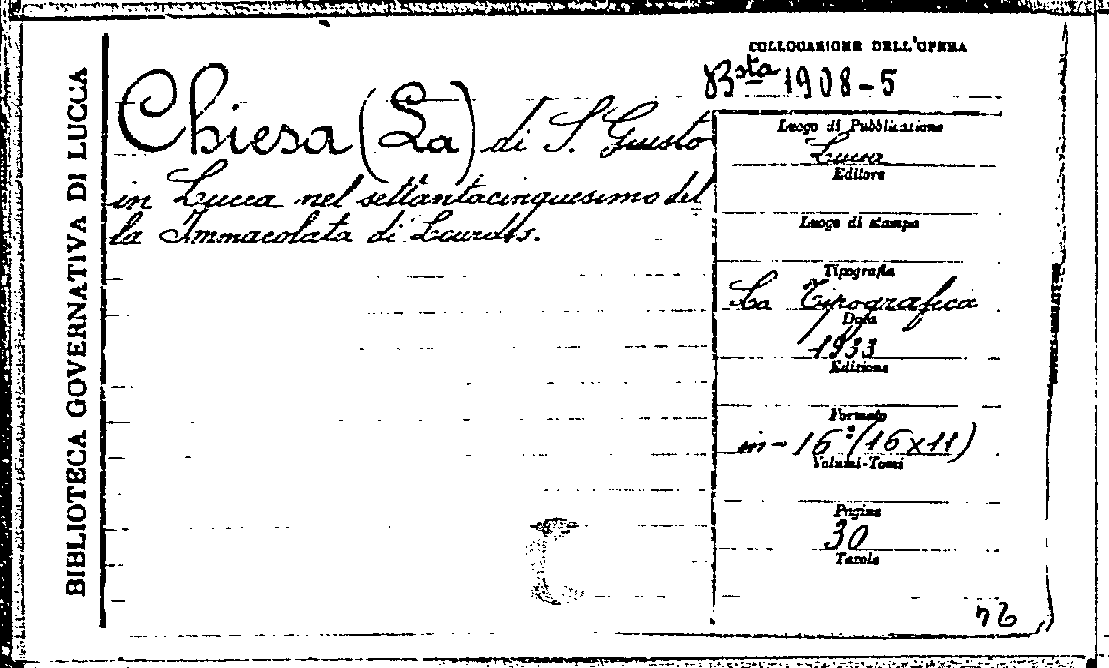 BIBLIOTECA GOVERNATIVA DI LUCCA
COLLOCAZIONE DELL'OPERA
Bsta 1908-5
Chiesa (La) di S. Giusto
in Lucca nel settantacinquesimo del
la Immacolata di Lourdes.
Luogo di Pubblicazione
Lucca
Editore
Luogo di stampa
Tipografia
La Tipografica
Data
1933
Edizione
Formato
in-16° (16x11)
Volumi-Tomi
Pagine
30
Tavole